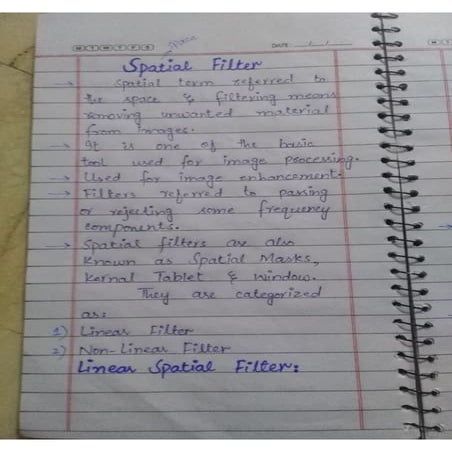 space
M T W T F S
DATE: / /
Spatial Filter
→ Spatial term referred to
the space & filtering means
removing unwanted material
from images.
→ It is one of the basic
tool used for image processing.
→ Used for image enhancement.
→ Filters referred to passing
or rejecting some frequency
components.
→ Spatial filters are also
known as Spatial Masks,
Kernal Tablet & window.
They are categorized
as:
1) Linear Filter
2) Non-Linear Filter
Linear Spatial Filter: